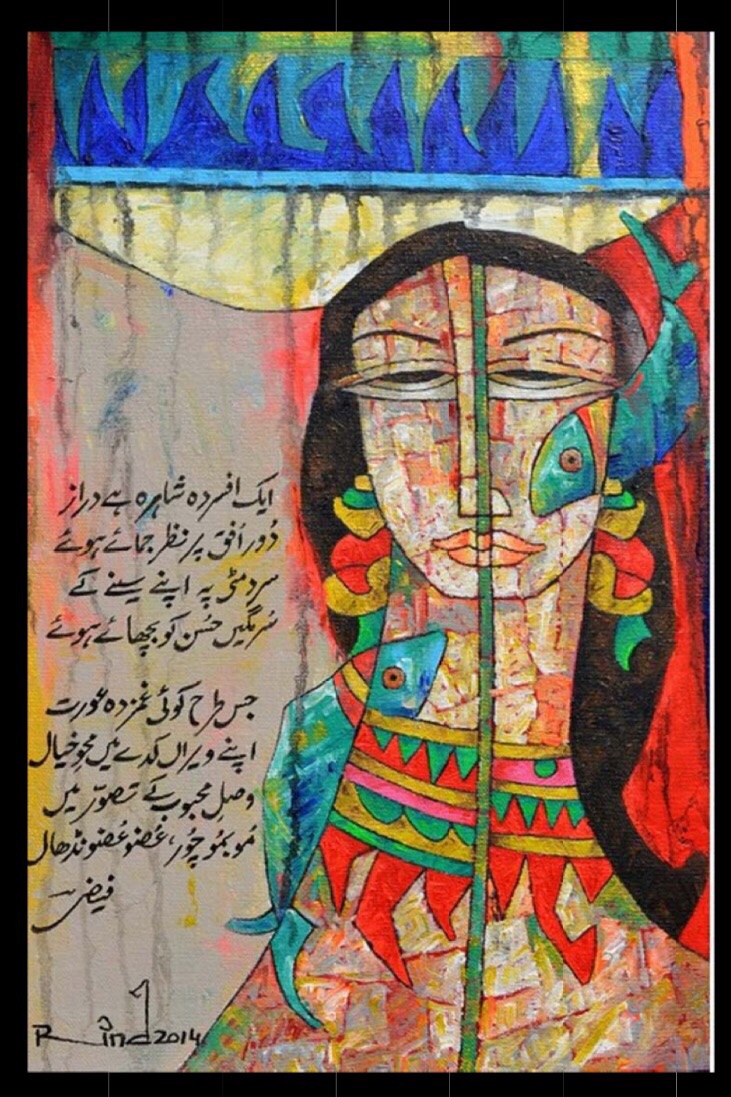 ایک افسردہ شاہرہ ہے دراز
دُور اُفق پر نظر جمائے ہوئے
سرد مٹی پہ اپنے سینے کے
سُرمگیں حُسن کو بچھائے ہوئے
جس طرح کوئی غمزدہ عورت
اپنے ویراں کدے میں محوِ خیال
وصلِ محبوب کے تصوّر میں
مُو بمُو چُور، عُضو عُضو نڈھال
فیض
Rind 2014